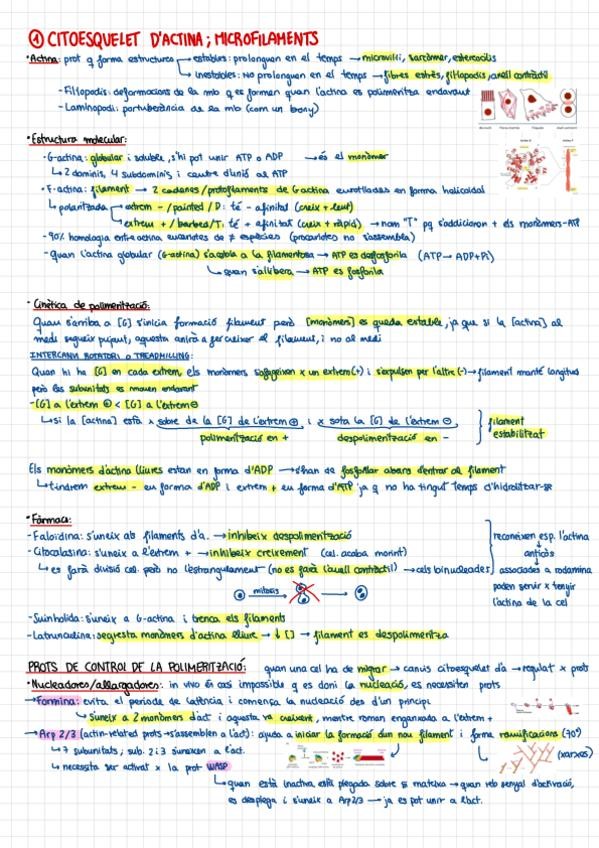 ① CITOESQUELET D'ACTINA; MICROFILAMENTS
· Actina: prot q forma estructures → estables: prolonguen en el temps → microvilli, sarcòmer, estereocilis
→ inestables: NO prolonguen en el temps → fibres estrès, fil·lopodis, anell contràctil
- Fil·lopodis: deformacions de la mb q es formen quan l'actina es polimeritza endavant
- Lamin·lopodi: protuberància de la mb (com un bony)
· Estructura molecular:
- G-actina: globular i soluble, s'hi pot unir ATP o ADP → és el monòmer
↳ 2 dominis, 4 subdominis i centre d'unió al ATP
- F-actina: filament → 2 cadenes/protofilaments de G actina enrotllades en forma helicoïdal
↳ polaritzada → extrem - / pointed / D: té - afinitat (creix + lent)
→ extrem + / barbed / T: té + afinitat (creix + ràpid) → nom "T" pq s'addicionen + els monòmers-ATP
- 90% homologia entre actina eucariotes de ≠ espècies (procariotes no s'assembla)
- Quan l'actina globular (G-actina) s'acobla a la filamentosa → ATP es desfosforila (ATP → ADP+Pi)
↳ quan s'allibera → ATP es fosforila
· Cinètica de polimerització:
Quan s'arriba a [G] s'inicia formació filament però [monòmers] es queda estable, ja que si la [actina] al
medi segueix pujant, aquesta anirà a fer créixer el filament, i no al medi
INTERCANVI ROTATORI O TREADMILLING:
Quan hi ha [G] en cada extrem, els monòmers s'afegeixen x un extrem (+) i s'expulsen per l'altre (-) → filament manté longitud
però les subunitats es mouen endavant
- [G] a l'extrem ⊕ < [G] a l'extrem ⊖
↳ si la [actina] està x sobre de la [G] de l'extrem ⊕ i x sota la [G] de l'extrem ⊖
polimerització en + despolimerització en -
filament
estabilitzat
Els monòmers d'actina lliures estan en forma d'ADP → s'han de fosforilar abans d'entrar al filament
↳ tindrem extrem - en forma d'ADP i extrem + en forma d'ATP ja q no ha tingut temps d'hidrolitzar-se
· Fàrmacs:
- Fal·loïdina: s'uneix ab filaments d'a. → inhibeix despolimerització
- Citocalasina: s'uneix a l'extrem + → inhibeix creixement (cel. acaba morint)
↳ es farà divisió cel. però no l'estrangulament (no es farà l'anell contràctil) → cels binucleades
mitosis
reconeixen esp. l'actina
anticòs
associades a rodamina
poden servir x tenyir
l'actina de la cel
- Suinholida: s'uneix a G-actina i trenca els filaments
- Latrunculina: segresta monòmers d'actina lliure → ↓ [ ] → filament es despolimeritza
PROTS DE CONTROL DE LA POLIMERITZACIÓ: quan una cel ha de migrar → canvis citoesquelet d'a → regulat x prots
· Nucleadores/allargadores: in vivo és casi impossible q es doni la nucleació, es necessiten prots
→ Formina: evita el període de latència i comença la nucleació des d'un principi
↳ S'uneix a 2 monòmers d'act i aquesta va creixent, mentre roman enganxada a l'extrem +
→ Arp 2/3 (actin-related prots → s'assemblen a l'act): ajuda a iniciar la formació d'un nou filament i forma ramificacions (70°)
(xarxes)
↳ 7 subunitats, sub. 2 i 3 s'uneixen a l'act.
↳ necessita ser activat x la prot WASP
↳ quan està inactiva, està plegada sobre si mateixa → quan reb senyal d'activació,
es desplega i s'uneix a Arp2/3 → ja es pot unir a l'act.